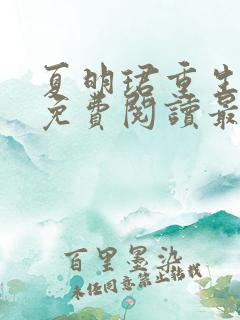 夏明珺重生
免費閱讀最
百里墨染
未经同意禁止转载